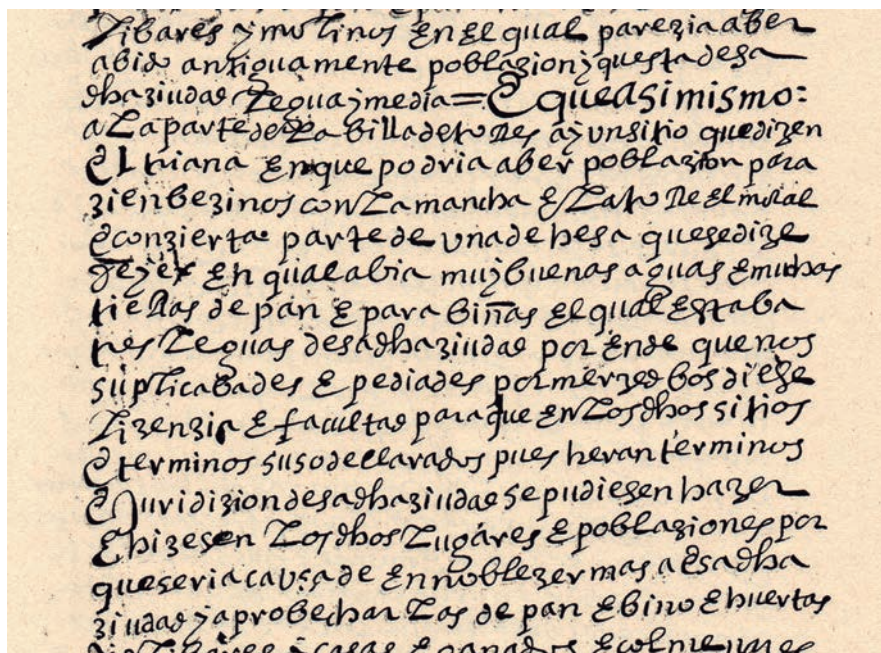 olibares y molinos en el qual parezia aber
abido antiguamente poblazion y questa desa
dha ziudad legua y media = E que asimismo:
a la parte de la billa de tores ay un sitio que dizen
el triana en que podria aber poblazion para
zien bezinos con la mancha e lato de el moral
e con zierta parte de una dehesa que se dize
en qual abia muy buenas aguas e muchas
tierras de pan e para biñas el qual estaba
tres leguas desa dha ziudad por ende que nos
suplicabades e pediades por merzed bos diese
lizenzia e facultad para que en los dhos sitios
e terminos suso declarados pues heran terminos
e juridizion desa dha ziudad se pudiesen hazer
e hiziesen los dhos lugares e poblaziones por
que seria causa de ennoblezer mas a esa dha
ziudad y aprobechar las de pan e bino e huertas
olibares y casas e ganados e colmenares